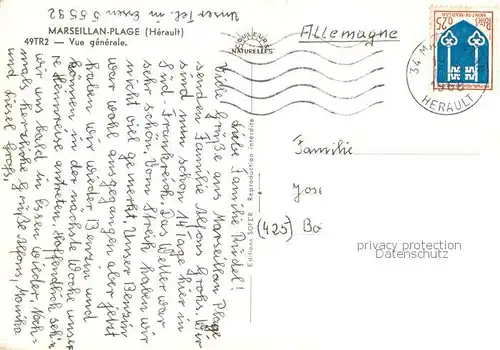 Unser Tel. in Essen 5 55 92
MARSEILLAN-PLAGE (Hérault)
49TR2 - Vue générale.
COULEURS
NATURELLES
Allemagne
0,25
MONT-DE-MARSAN
34 MA
1968
HERAULT
Editions SOFER - Reproduction Interdite
Liebe Familie Bridel!
Viele Grüße aus Marseillan Plage
senden Familie Alfons Grohs. Wir
sind nun schon 14 Tage hier in
Süd-Frankreich. Das Wetter war
sehr schön. Vom Streik haben wir
nicht viel gemerkt. Unser Benzin
war wohl ausgegangen aber jetzt
haben wir wieder Benzin und
können in der nächste Woche unse
re Heimreise antreten. Hoffendlich seh'n
wir uns bald in Essen wieder. Noch-
mals herzliche Grüße Alfons, Monika
und Liesel Grohs.
Familie
Jose
(425) Bo
privacy protection
Datenschutz